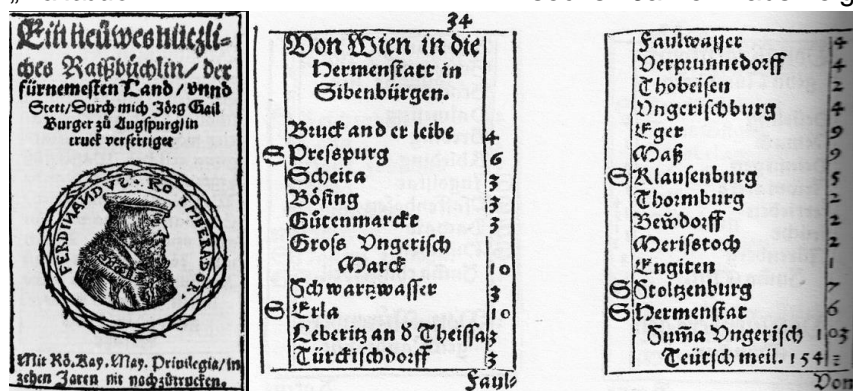 Ein neüwes nützli-
ches Raißbüchlin/ der
fürnemesten Land / vnnd
Stett/Durch mich Jörg Gail
Burger zů Augspurg/in
truck verfertiget
FERDINANDVS. RO IMBERADOR.
Mit Rö. Kay. May. Priuilegia/in
zehen Jaren nit nachzůtrucken.
34
Von Wien in die
Hermenstatt in
Sibenbürgen.
Bruck and er leibe 4
S Presspurg 6
Scheita 3
Bösing 3
Gůtenmarckt 3
Gross Vngerisch
Marck 10
Schwartzwasser 3
S Erla 10
Leberitz an d Theissa 3
Türckischdorff 3
Faul-
Faulwasser 4
Verprunnedorff 4
Thobeisen 2
Vngerischburg 4
Eger 9
Maß 9
S Klausenburg 5
Thornburg 2
Bewdorff 2
Merisstoch 2
Engiten 1
S Stoltzenburg 7
S Hermenstat 6
Suma Vngerisch 103
Teütsch meil. 154
Von